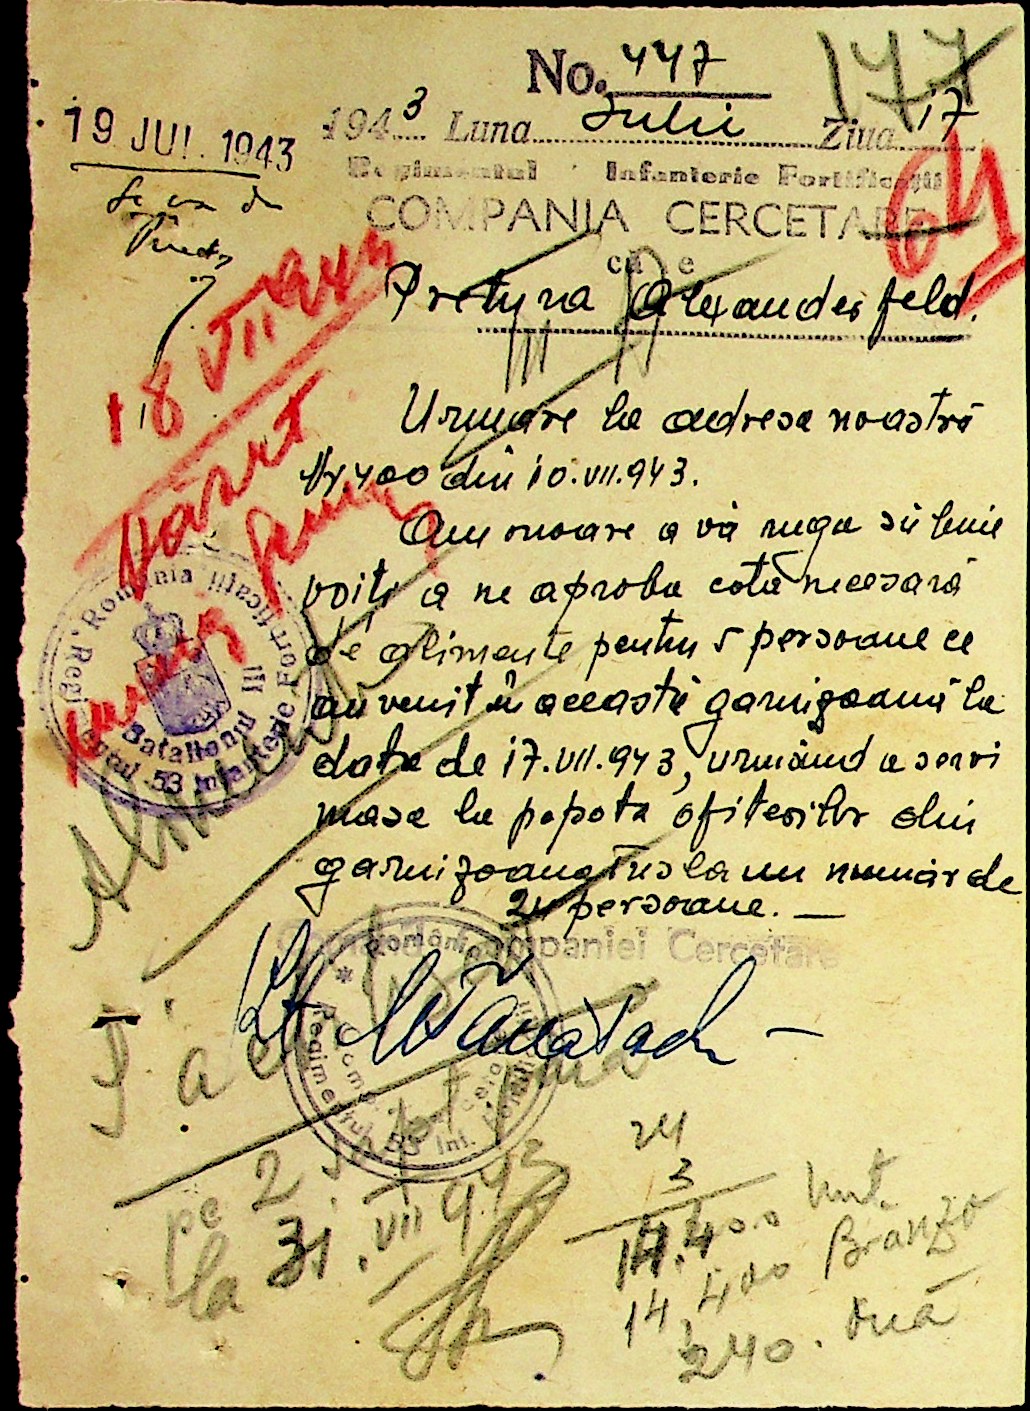 No. 447
177
19 JUL. 1943
1943 Luna Iulii Ziua 17
Regimentul Infanterie Fortificații
64
COMPANIA CERCETARE
către
Pretura Alexanderfeld.
18 VII 944
Urmare la adresa noastră
Nr 400 din 10.VII.943.
Am onoare a vă ruga să bine
voiți a ne aproba cota necesară
de alimente pentru 5 persoane ce
au venit în această garnizoană la
data de 17.VII.943, urmând a servi
masa la popota ofițerilor din
garnizoană
la un număr de
24 persoane. —
România
Regimentul 53 Infanterie Fortificații
Batalionul III
Comand Companiei Cercetare
Lt
România
Regimentul 53 Inf.
pe 2
la 31. VII 943
24
3
14.400 Unt
14,400 Branza
240. ouă